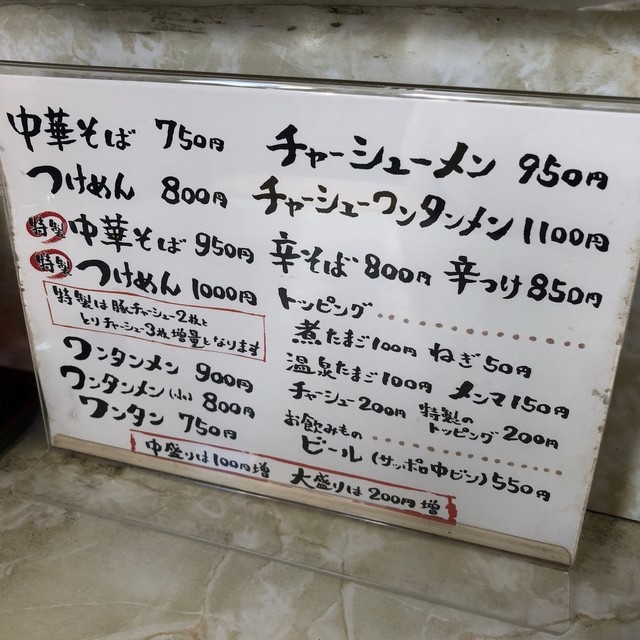 中華そば 750円
つけめん 800円
特製 中華そば 950円
特製 つけめん 1000円
特製は豚チャーシュー2枚と
とりチャーシュー3枚増量となります
ワンタンメン 900円
ワンタンメン(小) 800円
ワンタン 750円
チャーシューメン 950円
チャーシューワンタンメン 1100円
辛そば 800円 辛つけ 850円
トッピング
煮たまご100円 ねぎ50円
温泉たまご100円 メンマ150円
チャーシュー200円 特製のトッピング 200円
お飲みもの
ビール(サッポロ中ビン)550円
中盛りは100円増 大盛りは200円増